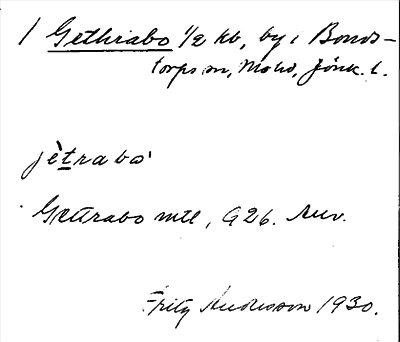 1 Gethrabo 1/2 kb, by i Bonds-
torps sn, Mo hd, Jönk. l.
jètrabo
Gettrabo mtl, G26. Auv.
Fritz Andersson 1930.